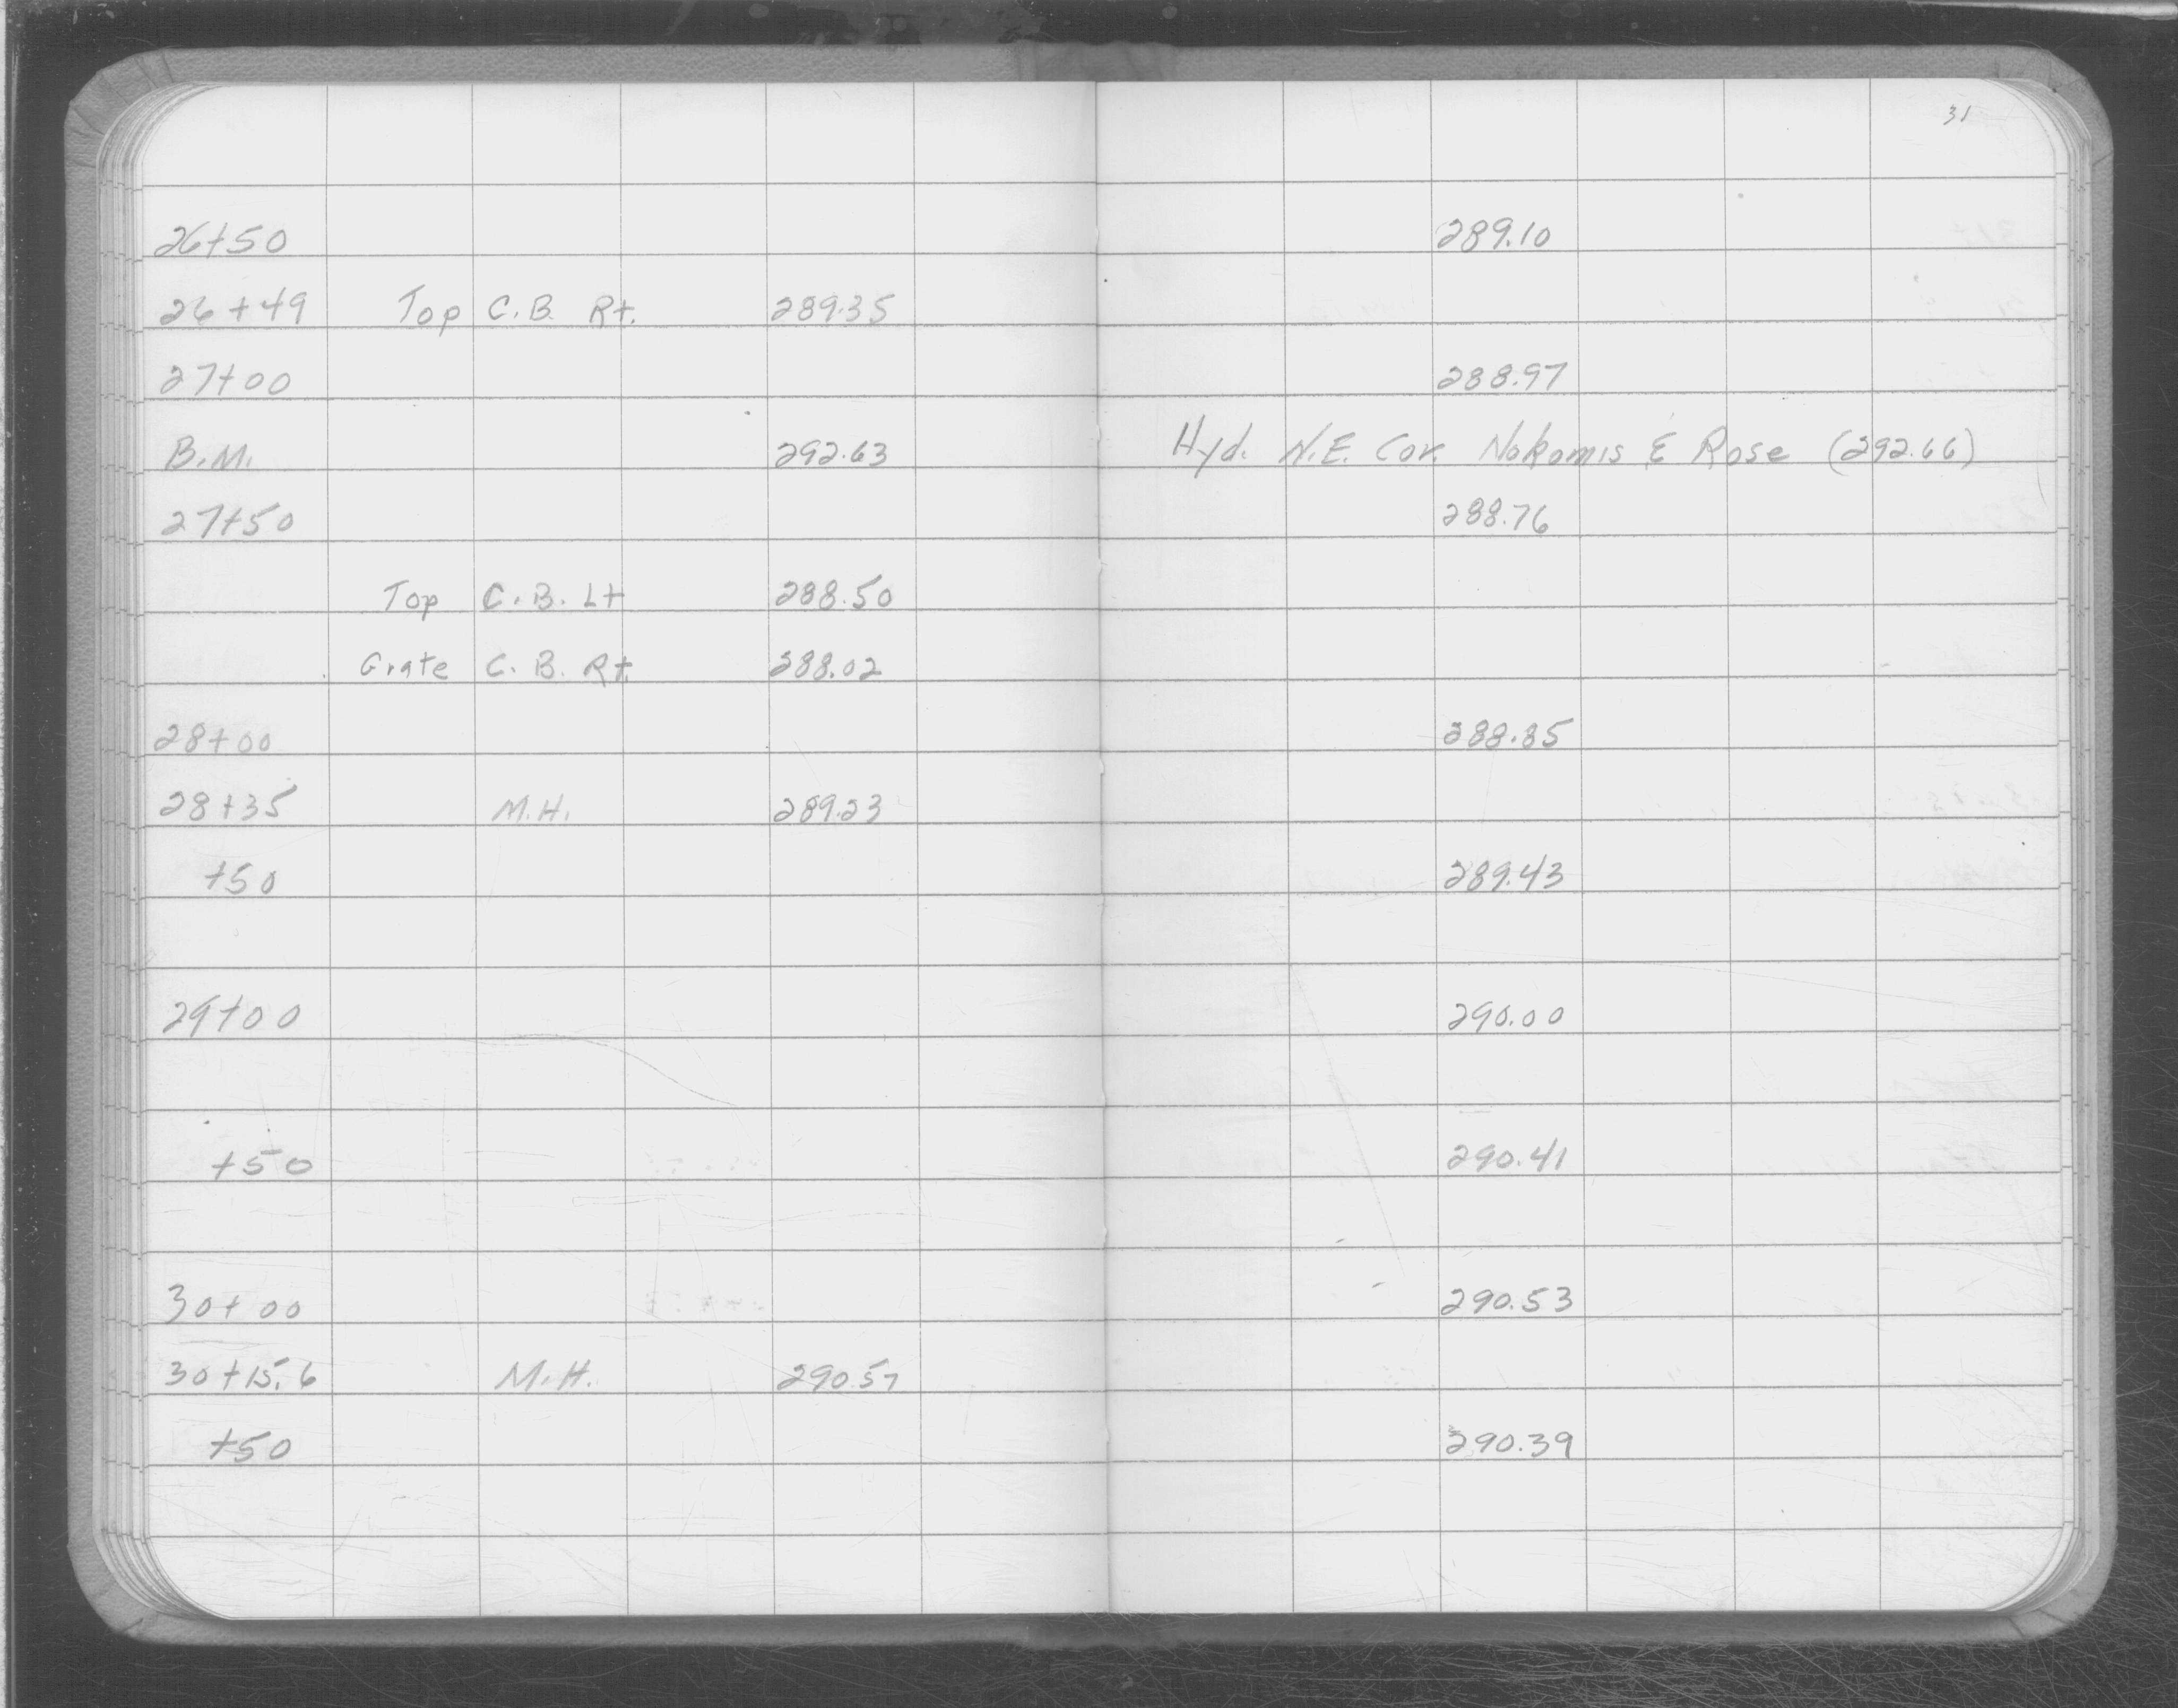 31
26+50 289.10
26+49 Top C.B. Rt. 289.35
27+00 288.97
B.M. 292.63 Hyd. N.E. Cor. Nokomis & Rose (292.66)
27+50 288.76
Top C.B. Lt 288.50
Grate C.B. Rt. 288.02
28+00 288.85
28+35 M.H. 289.23
+50 289.43
29+00 290.00
+50 290.41
30+00 290.53
30+15.6 M.H. 290.57
+50 290.39